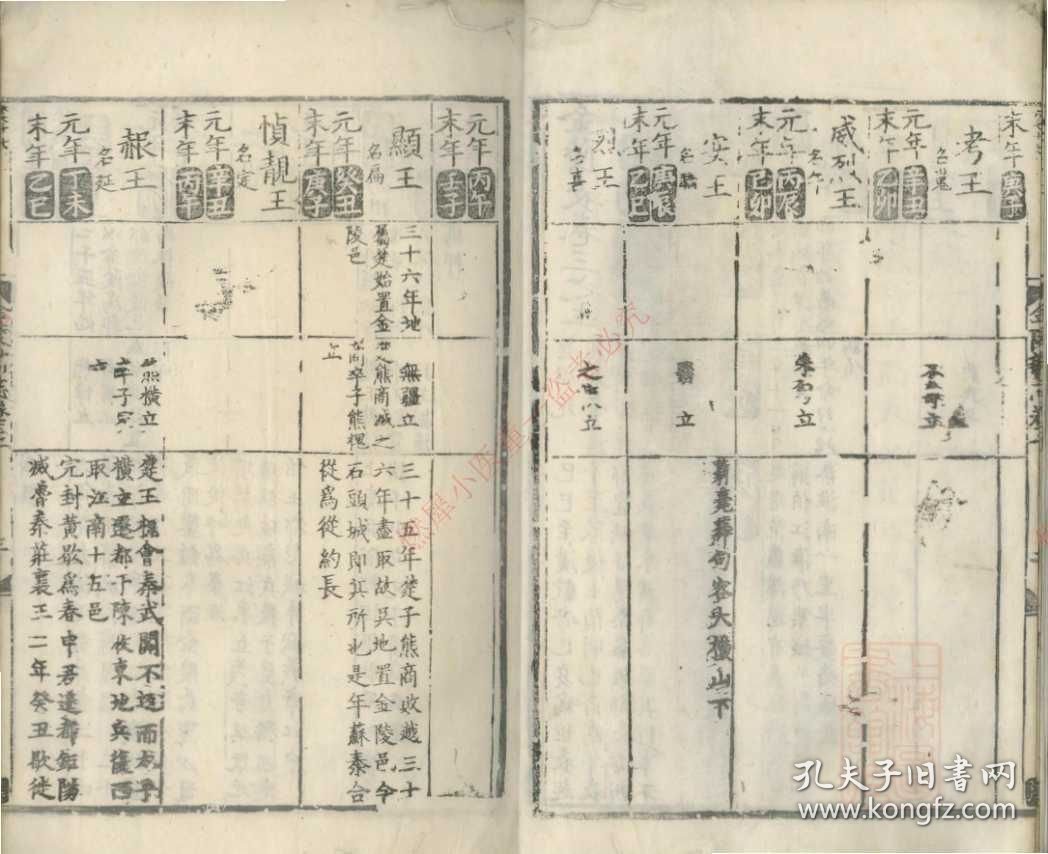 末年庚子
考王
名嵬
元年辛丑
末年乙卯
威烈王
名午
元年丙辰
末年己卯
安王
名驕
元年庚辰
末年乙巳
烈王
名喜
立
朱勾立
翳立
之立
翳薨葬句容大橫山下
元年丙午
末年壬子
顯王
名扁
元年癸丑
末年庚子
慎靚王
名定
元年辛丑
末年丙午
赧王
名延
元年丁未
末年乙巳
三十六年地
屬楚始置金
陵邑
無疆立
熊商滅之
商卒子熊槐
立
熊橫立
卒子完
立
三十五年楚子熊商敗越三十
六年盡取故吳地置金陵邑今
石頭城即其所也是年蘇秦合
從爲從約長
楚王槐會秦武關不返而太子
橫立遷都于陳收東地兵復西
取江南十五邑
完封黄歇爲春申君遷都鉅陽
滅魯秦莊襄王二年癸丑歇徙
照犀小医童 盗者必究
孔夫子旧书网
www.kongfz.com